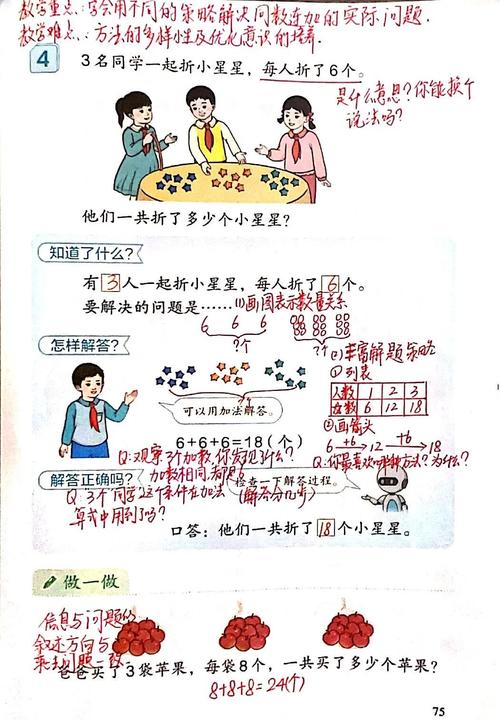 教学重点：学会用不同的策略解决同数连加的实际问题.
教学难点：方法的多样性及优化意识的培养.
4
3名同学一起折小星星，每人折了6个。
是什么意思？你能换个
说法吗？
他们一共折了多少个小星星？
知道了什么？
有3人一起折小星星，每人折了6个。
要解决的问题是……
(1)画图表示数量关系
6 6 6
?个
?个
怎样解答？
(2)丰富解题策略
①列表
人数 1 2 3
个数 6 12 18
②画箭头
6 +6 → 12 +6 → 18
可以用加法解答。
6+6+6=18（个）
Q:观察3个加数，你发现了什么？
加数相同，都是6
Q:你最喜欢哪种方法？为什么？
解答正确吗？
Q:3个同学这个条件在加法
算式中用到了吗？
检查一下解答过程。
(解答分几步)
口答：他们一共折了18个小星星。
做一做
信息与问题的
叙述方向与
爸爸买了3袋苹果，每袋8个，一共买了多少个苹果？
8+8+8=24(个)
75